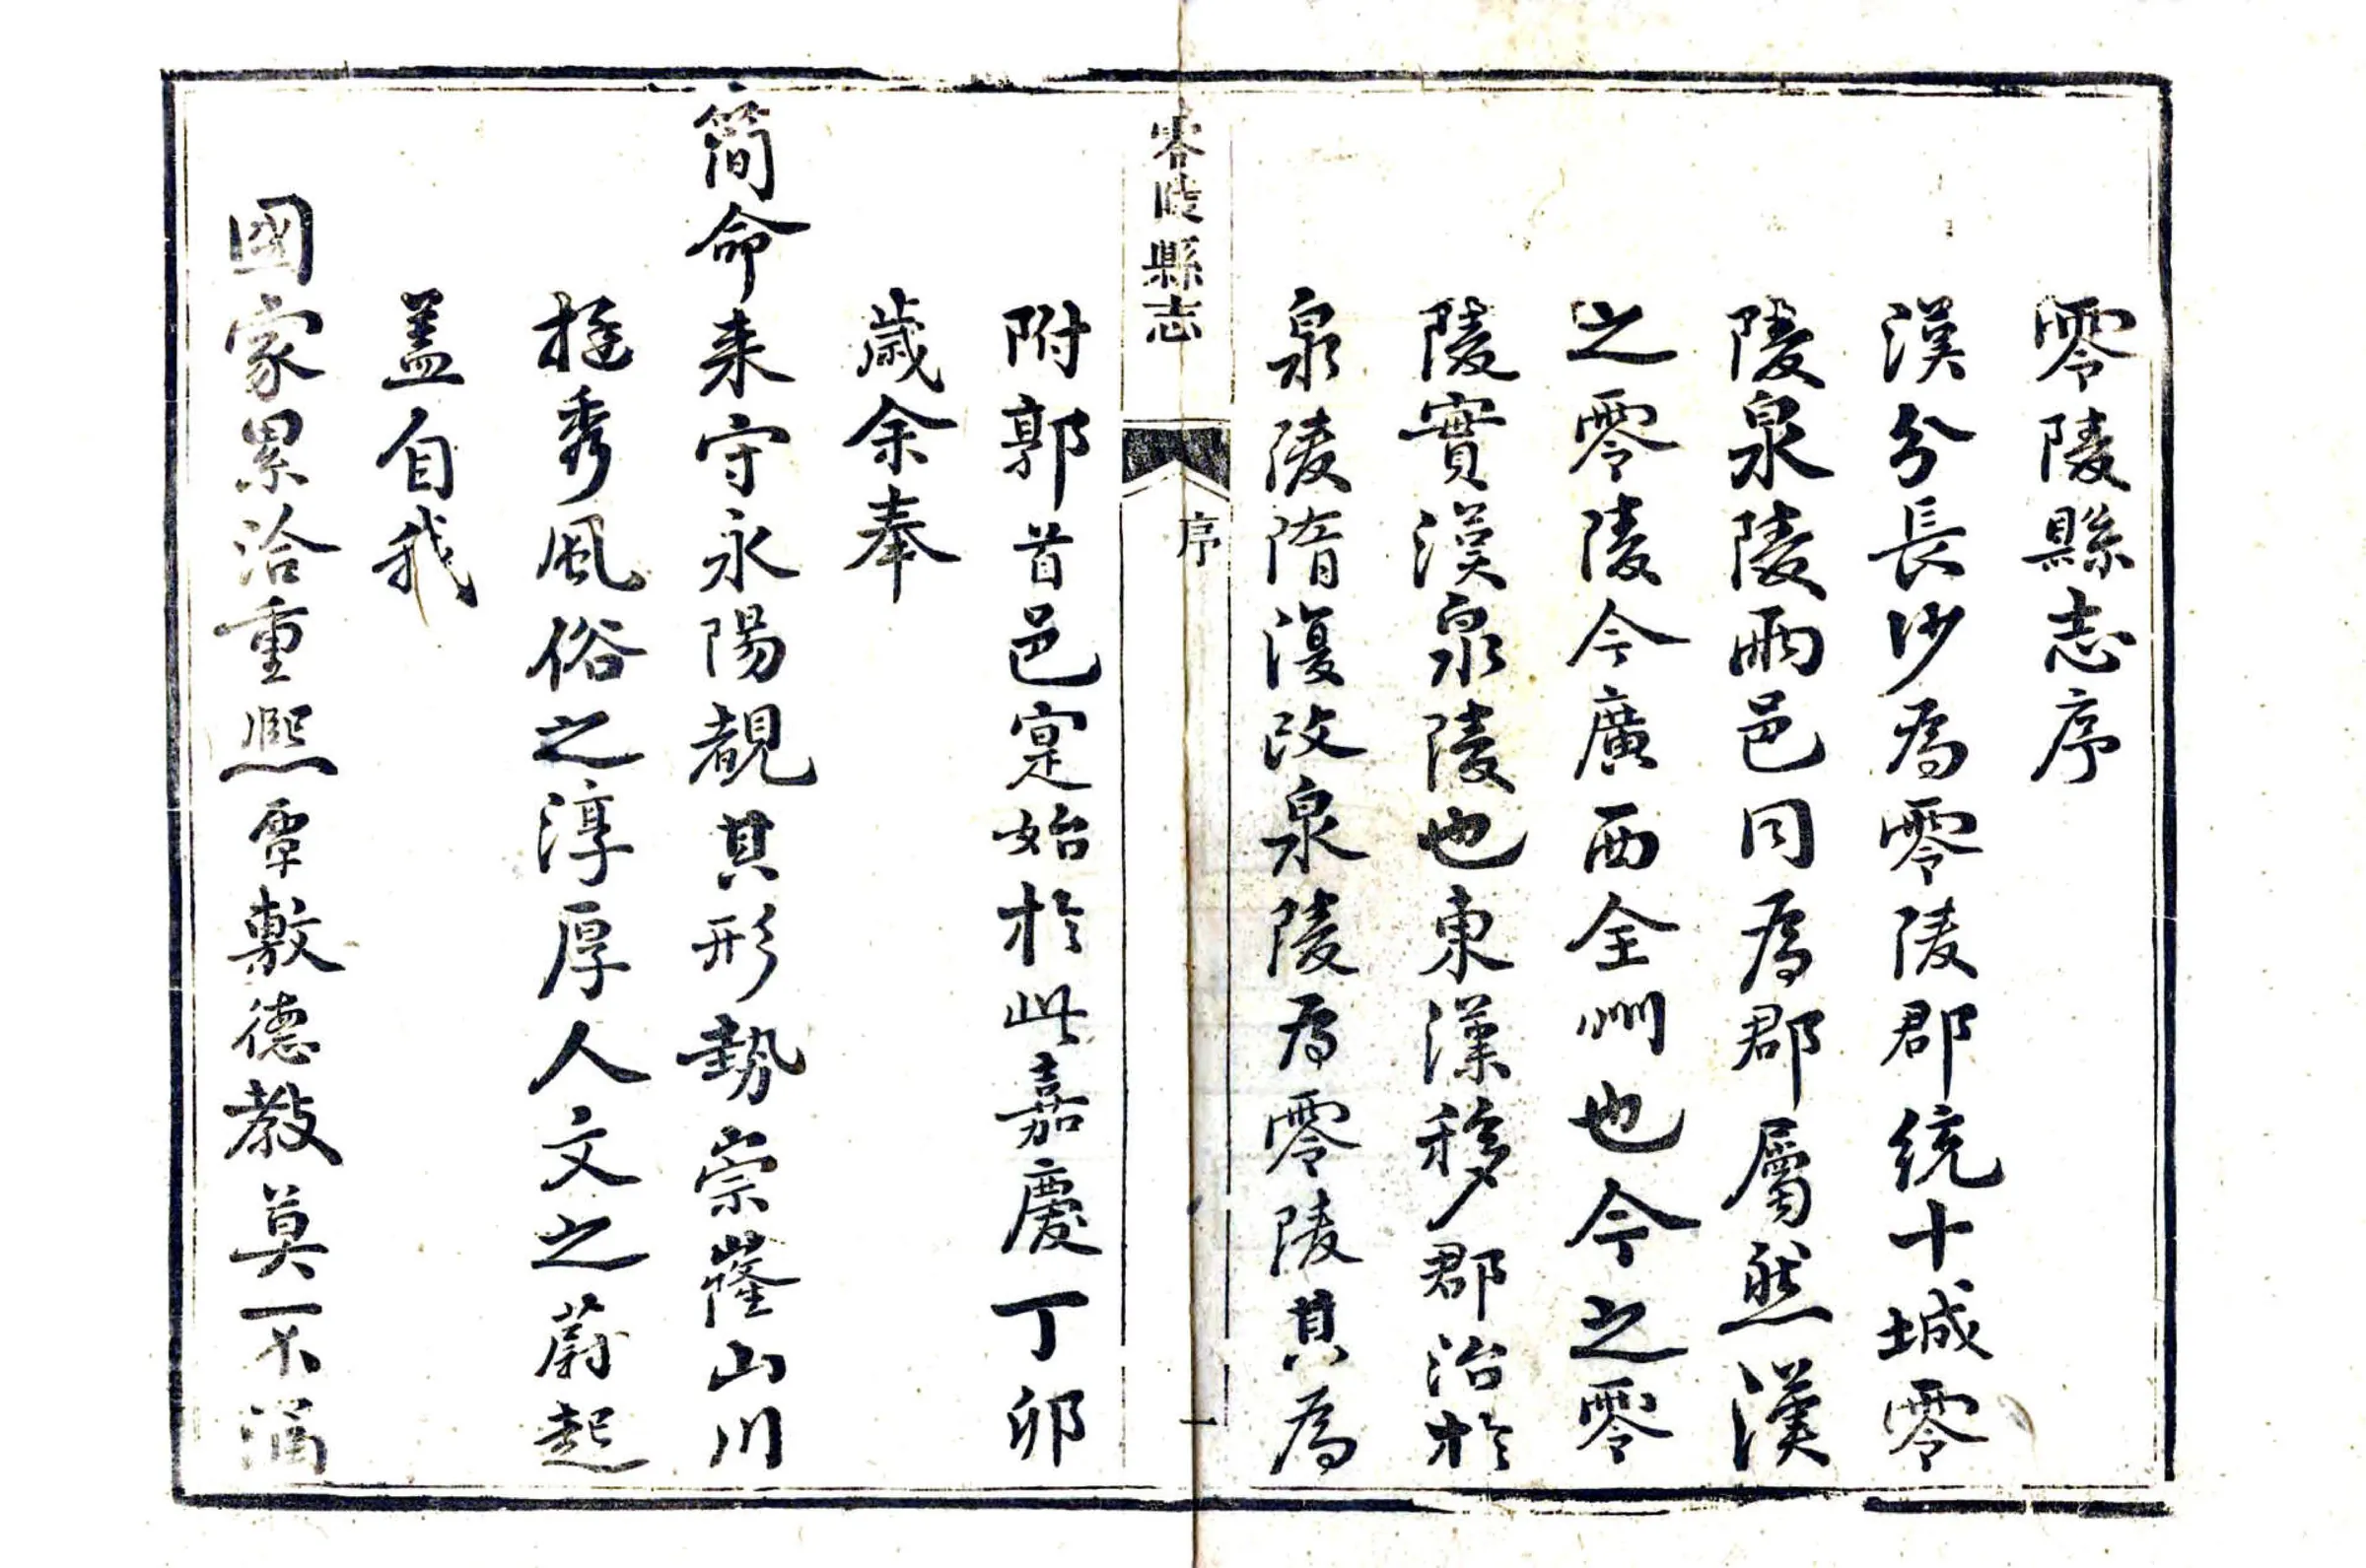 零陵縣志序
漢分長沙為零陵郡統十城零
陵泉陵兩邑同為郡屬然漢
之零陵今廣西全州也今之零
陵實漢泉陵也東漢移郡治於
泉陵隋復改泉陵為零陵其為
零陵縣志
序
一
附郭首邑寔始於此嘉慶丁卯
歲余奉
簡命来守永陽覩其形勢崇窿山川
挺秀風俗之淳厚人文之蔚起
盖自我
國家累洽重熙覃敷德教莫不涵